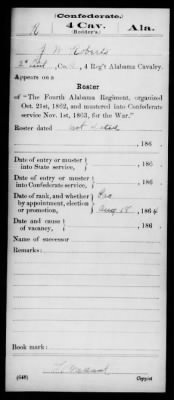 (Confederate.)
R
4 Cav.
(Roddey's.)
Ala.
J W Roberts
2" Lieut, Co. , 4 Reg't Alabama Cavalry.
Appears on a
Roster
of "The Fourth Alabama Regiment, organized
Oct. 21st, 1862, and mustered into Confederate
service Nov. 1st, 1863, for the War."
Roster dated not dated
, 186
Date of entry or muster
into State service,
, 186 .
Date of entry or muster
into Confederate service,
, 186 .
Date of rank, and whether
by appointment, election
or promotion,
Pro
Aug 18, 1864
Date and cause
of vacancy,
, 186 .
Name of successor
Remarks:
Book mark:
(640)
Copyist